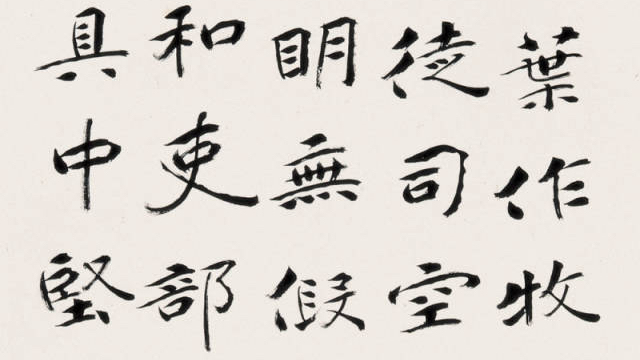 葉作牧
徒司空
明無假
和吏部
具中堅